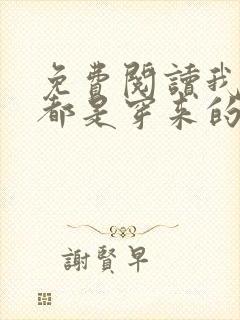 免費閱讀我
都是穿来的
謝賢早